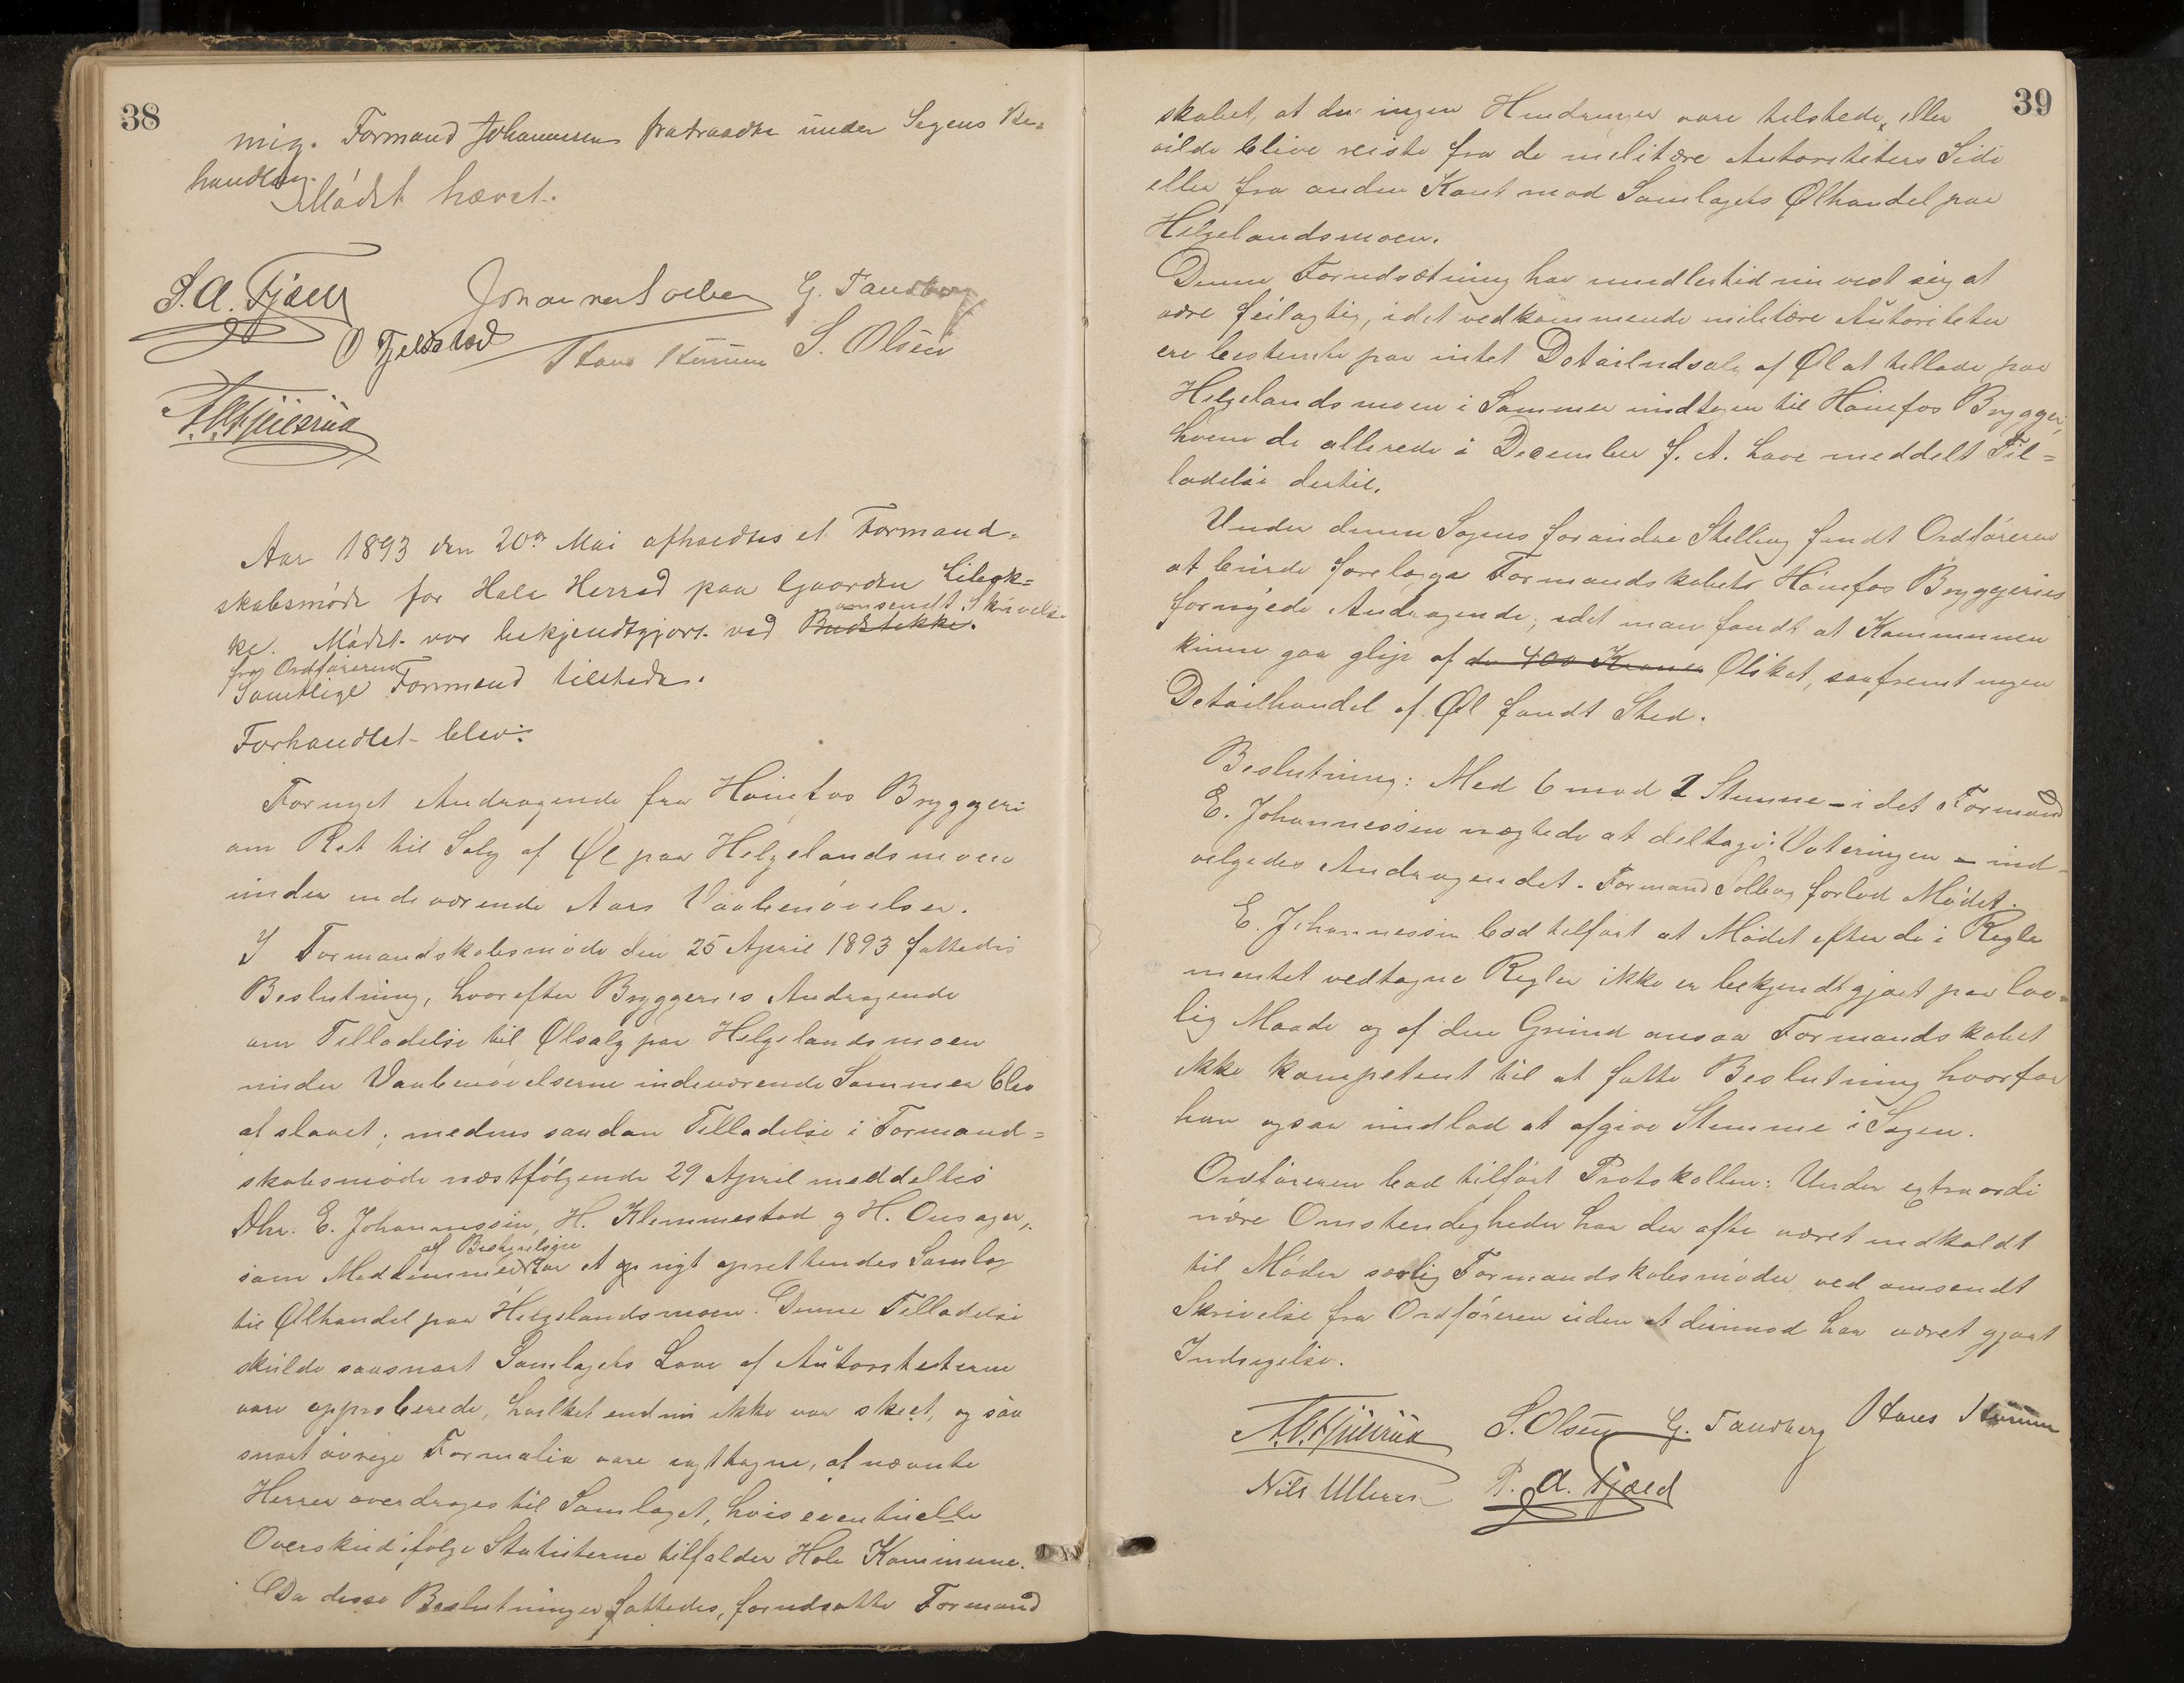 38
mig. Formand Johannessen fratraadte under Sagens Be=
handling.
Mødet hævet.
G. Tandberg
O Fjeldstad
S. Olsen
Aar 1893 den 20de Mai afholdtes et Formand=
skabsmøde for Hole Herred paa Gaarden Libak=
ke. Mødet var bekjendtgjort ved Budstikke. omsendt Skrivelse
fra Ordføreren
Samtlige Formænd tilstede.
Forhandlet blev:
Fornyet Andragende fra Hønefos Bryggeri
om Ret til Salg af Øl paa Helgelandsmoen
under indeværende Aars Vaabenøvelser.
I Formandskabsmøde den 25 April 1893 fattedes
Beslutning, hvorefter Bryggeriets Andragende
om Tilladelse til Ølsalg paa Helgelandsmoen
under Vaabenøvelserne indeværende Sommer blev
afslaaet; medens saadan Tilladelse i Formand=
skabsmøde næstfølgende 29 April meddeltes
Dhr. E. Johannessen, H. Klemmestad og H. Onsager,
af Bestyrelsen
som Medlemmer for et nyt oprettendes Samlag
til Ølhandel paa Helgelandsmoen. Denne Tilladelse
skulde saasnart Samlagets Love af Autoriteterne
vare approberede, hvilket endnu ikke var skeet, og saa
snart øvrige Formalia vare iagttagne, af nævnte
Herrer overdrages til Samlaget, hvis eventuelle
Overskud ifølge Statuterne tilfalder Hole Kommune.
Da disse Beslutninger fattedes, forudsatte Formand
39
skabet, at der ingen Hindringer vare tilstede, eller
vilde blive reiste fra de militære Autoriteters Side
eller fra anden Kant mod Samlagets Ølhandel paa
Helgelandsmoen.
Denne Forudsætning har imidlertid nu vist sig at
være feilagtig, idet vedkommende militære Autoriteter
ere bestemte paa intet Detailudsalg af Øl at tillade paa
Helgelandsmoen i Sommer undtagen til Hønefos Brygger,
hvem de allerede i December f. A. have meddelt Til=
ladelse dertil.
Under denne Sagens forandrede Stilling fandt Ordføreren
at burde forelægge Formandskabet Hønefos Bryggeries
fornyede Andragende, idet man fandt at Kommunen
kunne gaa glip af de 400 Kroner Ølskat, saafremt ingen
Detailhandel af Øl fandt Sted.
Beslutning: Med 6 mod 1 Stemme – idet Formand
E. Johannessen nægtede at deltage i Voteringen – ind=
vilgedes Andragendet. Formand Solberg forlod Mødet.
E. Johannessen bad tilført at Mødet efter de i Regle
mentet vedtagne Regler ikke er bekjendtgjort paa lov=
lig Maade og af den Grund ansaa Formandskabet
ikke kompetent til at fatte Beslutning hvorfor
han ogsaa undlod at afgive Stemme i Sagen.
Ordføreren bad tilført Protokollen: Under extraordi
nære Omstendigheder har der ofte været indkaldt
til Møder særlig Formandskabsmøder ved omsendt
Skrivelse fra Ordføreren uden at derimod har været gjort
Indsigelse.
S. Olsen G. Tandberg
Nils Ulleren P. A. Fjæld